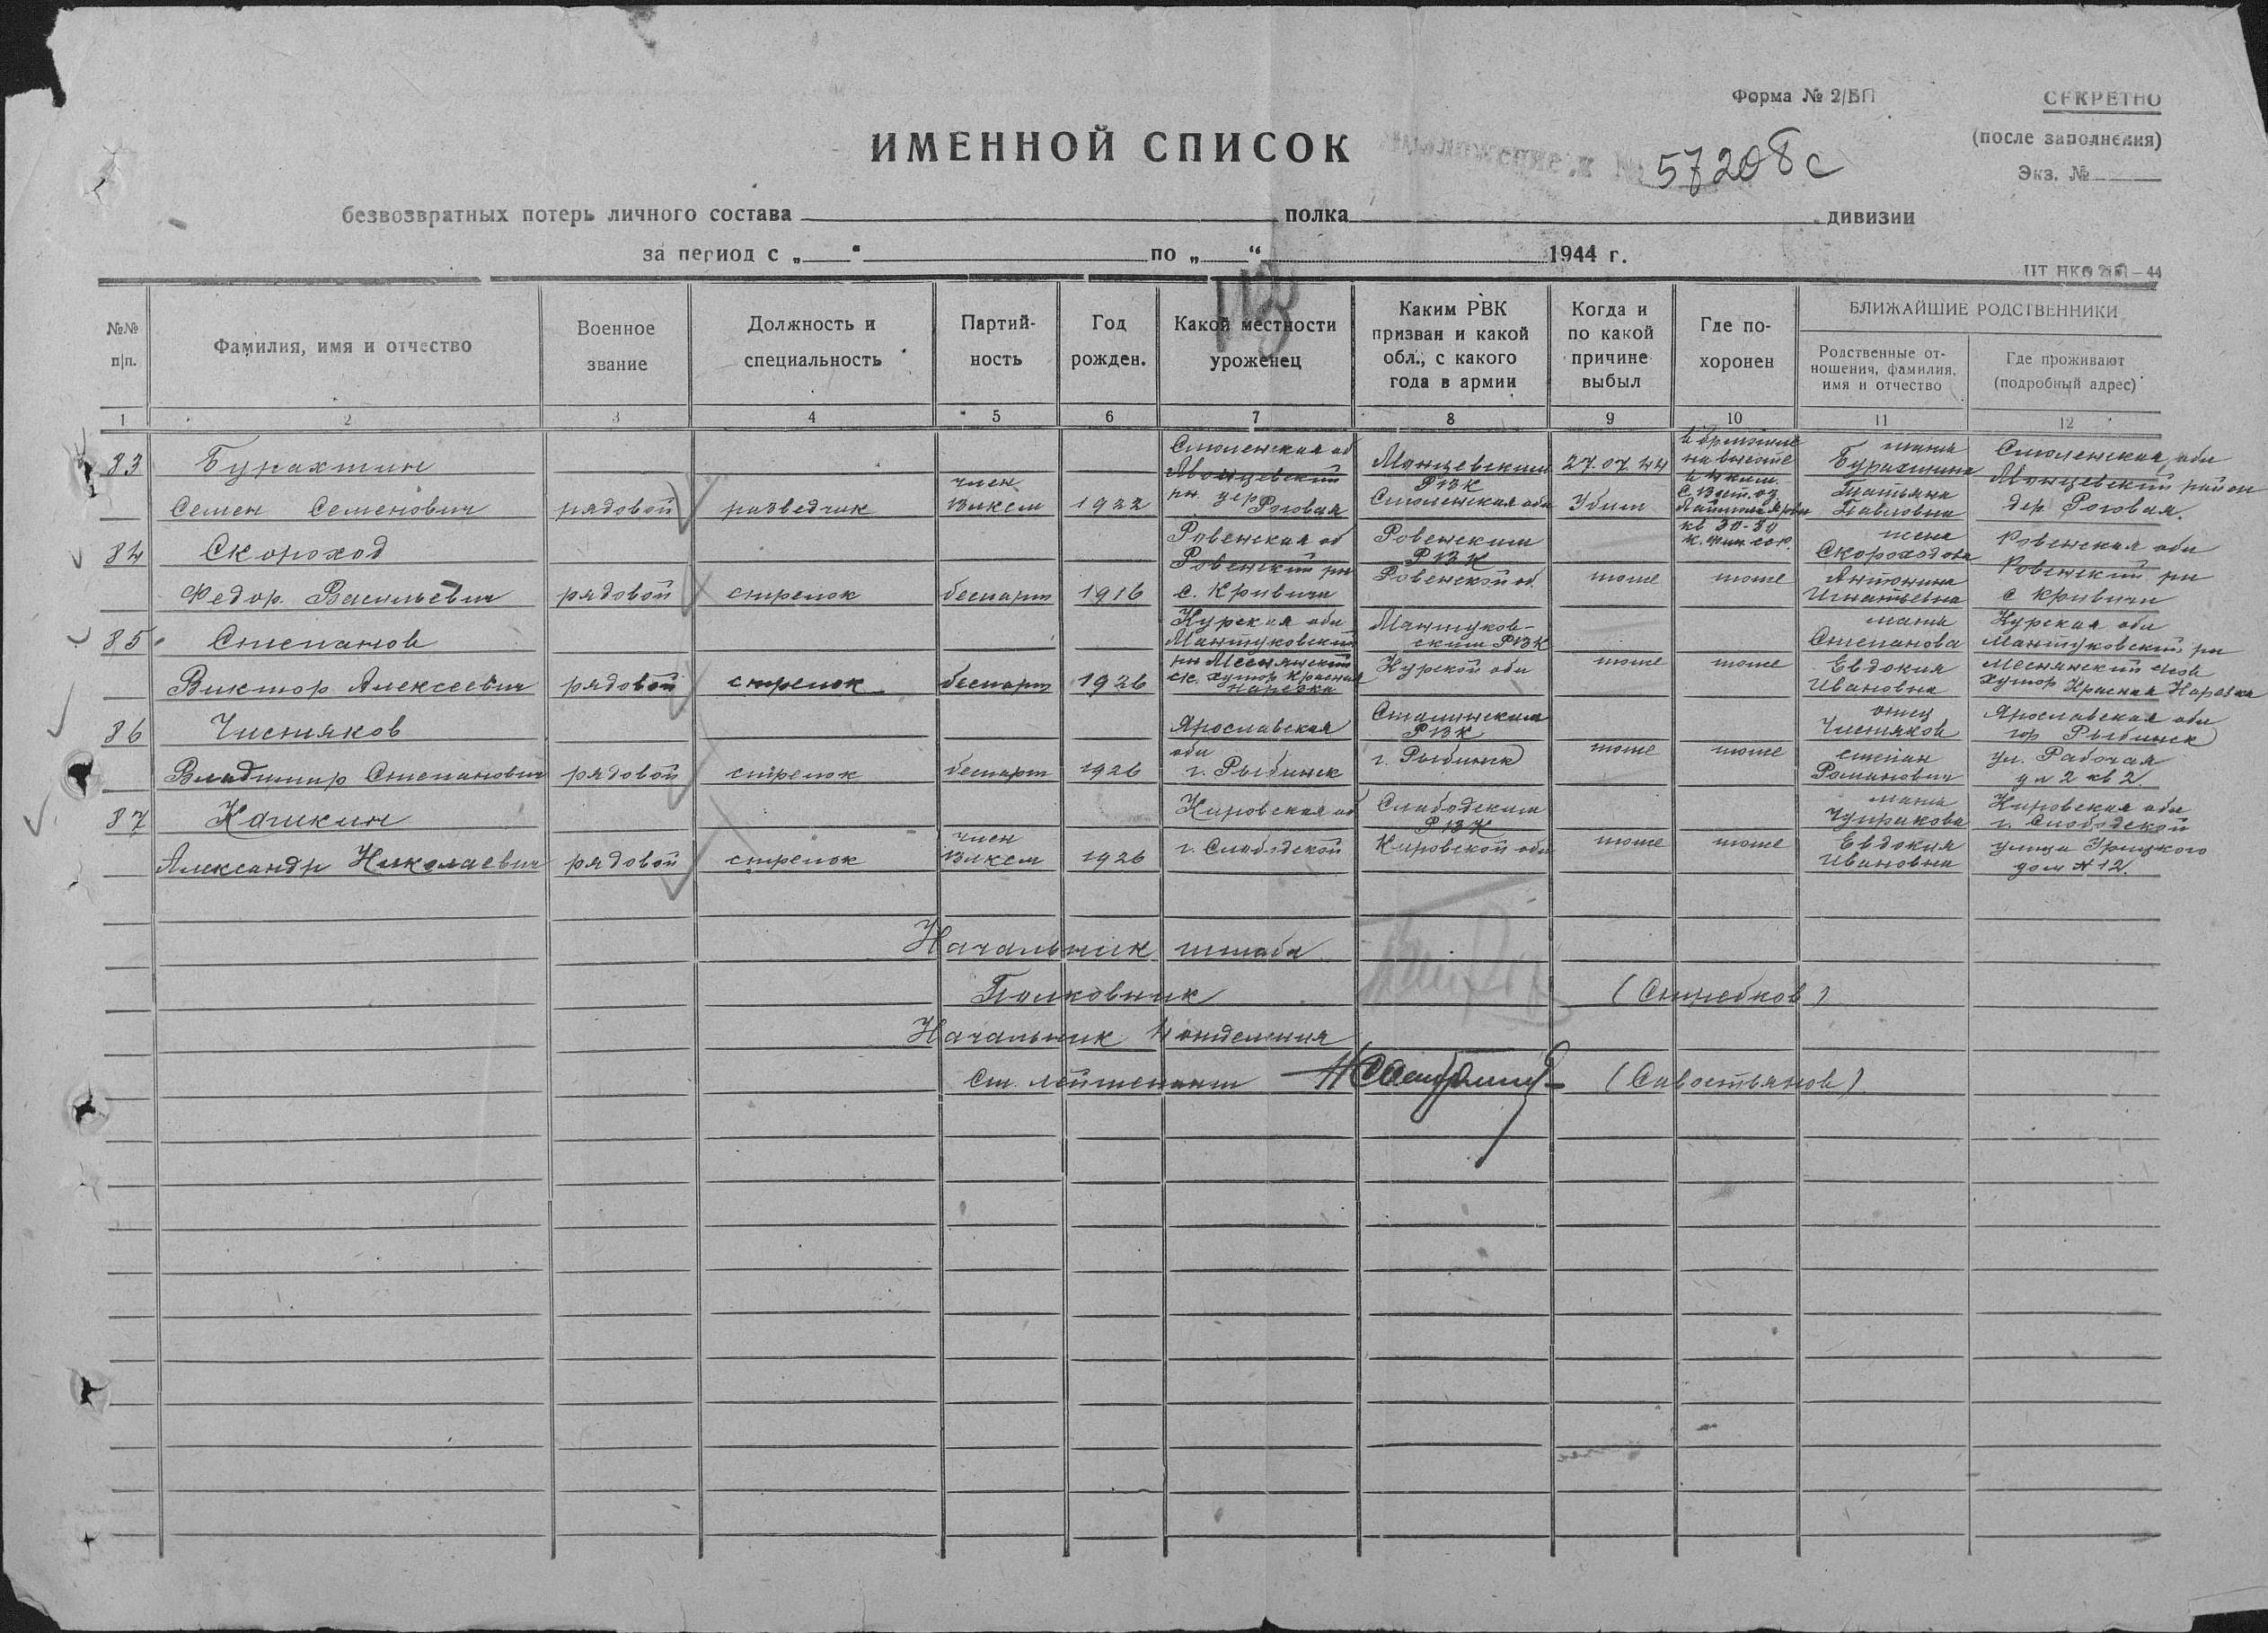 Форма № 2/БП
СЕКРЕТНО
(после заполнения)
Экз. №
ИМЕННОЙ СПИСОК
Приложение к №
57208с
безвозвратных потерь личного состава полка дивизии
за период с „ “ по „ “ 1944 г.
№№ п/п.
Фамилия, имя и отчество
Военное звание
Должность и специальность
Партий-ность
Год рожден.
Какой местности уроженец
Каким РВК призван и какой обл., с какого года в армии
Когда и по какой причине выбыл
Где по-хоронен
БЛИЖАЙШИЕ РОДСТВЕННИКИ
Родственные от-ношения, фамилия, имя и отчество
Где проживают (подробный адрес)
1 2 3 4 5 6 7 8 9 10 11 12
83 Бурахтин
Семен Семенович рядовой разведчик член ВЛКСМ 1922
Смоленская об
рн дер Роговая
РВК
Смоленская обл
27.07.44
Убит
мать
Татьяна
Павловна
Смоленская обл
район
дер. Роговая.
84 Скороход
Федор Васильевич рядовой стрелок беспарт 1916
Ровенская об
Ровенский рн
с. Кривичи
Ровенским
РВК
Ровенской об.
тоже тоже
жена
Скороходова
Антонина
Игнатьевна
Ровенская обл
Ровенский рн
с Кривичи
85 Степанов
Виктор Алексеевич рядовой стрелок беспарт 1926
Курская обл
Мантуковский
рн
хутор Красная
Мантуков-
ским РВК
Курской обл
тоже тоже
мать
Степанова
Евдокия
Ивановна
Курская обл
Мантуковский рн
хутор Красная
86 Чистяков
Владимир Степанович рядовой стрелок беспарт 1926
Ярославская
обл
г. Рыбинск
Сталинским
РВК
г. Рыбинск
тоже тоже
отец
Чистяков
Степан
Романович
Ярославская обл
гор Рыбинск
ул. Рабочая
д 2 кв 2.
87 Кашкин
Александр Николаевич рядовой стрелок член ВЛКСМ 1926
Кировская об
г. Слободской
Слободским
РВК
Кировской обл
тоже тоже
мать
Чуракова
Евдокия
Ивановна
Кировская обл
г. Слободской
улица Урицкого
дом № 12.
Начальник штаба
Полковник (Скребков)
Начальник 4 отделения
Ст. лейтенант (Савостьянов)